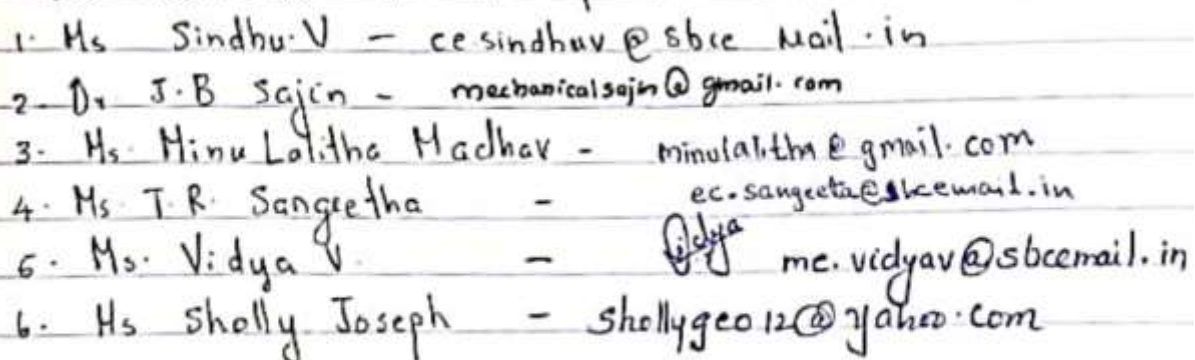 1. Ms Sindhu.V - ce.sindhuv@sbce mail.in
2. Dr J.B Sajin - mechanicalsajin@gmail.com
3. Ms. Minu Lalitha Madhav - minulalitha@gmail.com
4. Ms T.R. Sangeetha - ec.sangeeta@sbcemail.in
5. Ms. Vidya V. - Vidya me.vidyav@sbcemail.in
6. Ms Sholly Joseph - shollygeo12@yahoo.com